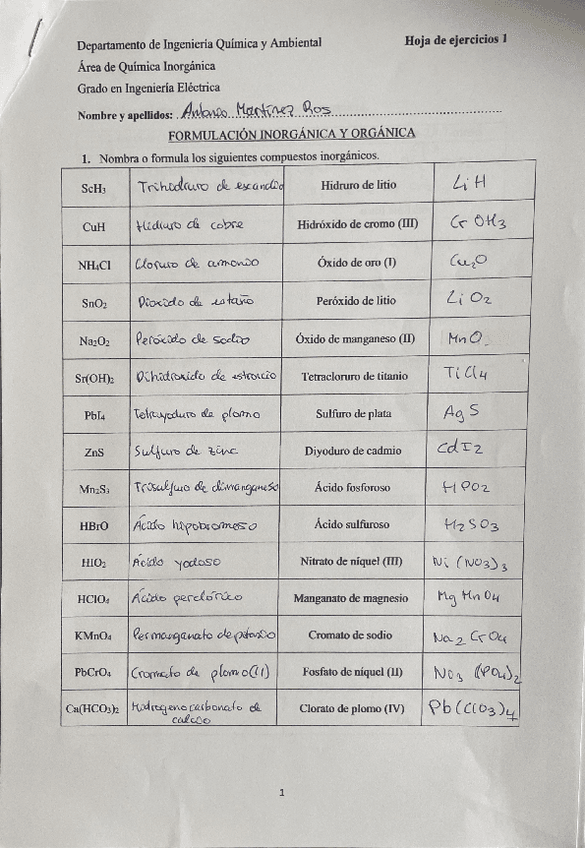 Departamento de Ingeniería Química y Ambiental Hoja de ejercicios 1
Área de Química Inorgánica
Grado en Ingeniería Eléctrica
Nombre y apellidos: Antonio Martínez Ros
FORMULACIÓN INORGÁNICA Y ORGÁNICA
1. Nombra o formula los siguientes compuestos inorgánicos.
ScH₃ Trihidruro de escandio Hidruro de litio LiH
CuH Hidruro de cobre Hidróxido de cromo (III) CrOH₃
NH₄Cl Cloruro de amonio Óxido de oro (I) Cu₂O
SnO₂ Dióxido de estaño Peróxido de litio LiO₂
Na₂O₂ Peróxido de sodio Óxido de manganeso (II) MnO
Sr(OH)₂ Dihidróxido de estroncio Tetracloruro de titanio TiCl₄
PbI₄ Tetrayoduro de plomo Sulfuro de plata AgS
ZnS Sulfuro de zinc Diyoduro de cadmio CdI₂
Mn₂S₃ Trisulfuro de dimanganeso Ácido fosforoso HPO₂
HBrO Ácido hipobromoso Ácido sulfuroso H₂SO₃
HIO₂ Ácido yodoso Nitrato de níquel (III) Ni(NO₃)₃
HClO₄ Ácido perclórico Manganato de magnesio MgMnO₄
KMnO₄ Permanganato de potasio Cromato de sodio Na₂CrO₄
PbCrO₄ Cromato de plomo(II) Fosfato de níquel (II) Ni₃(PO₄)₂
Ca(HCO₃)₂ Hidrogenocarbonato de Clorato de plomo (IV) Pb(ClO₃)₄
calcio
1